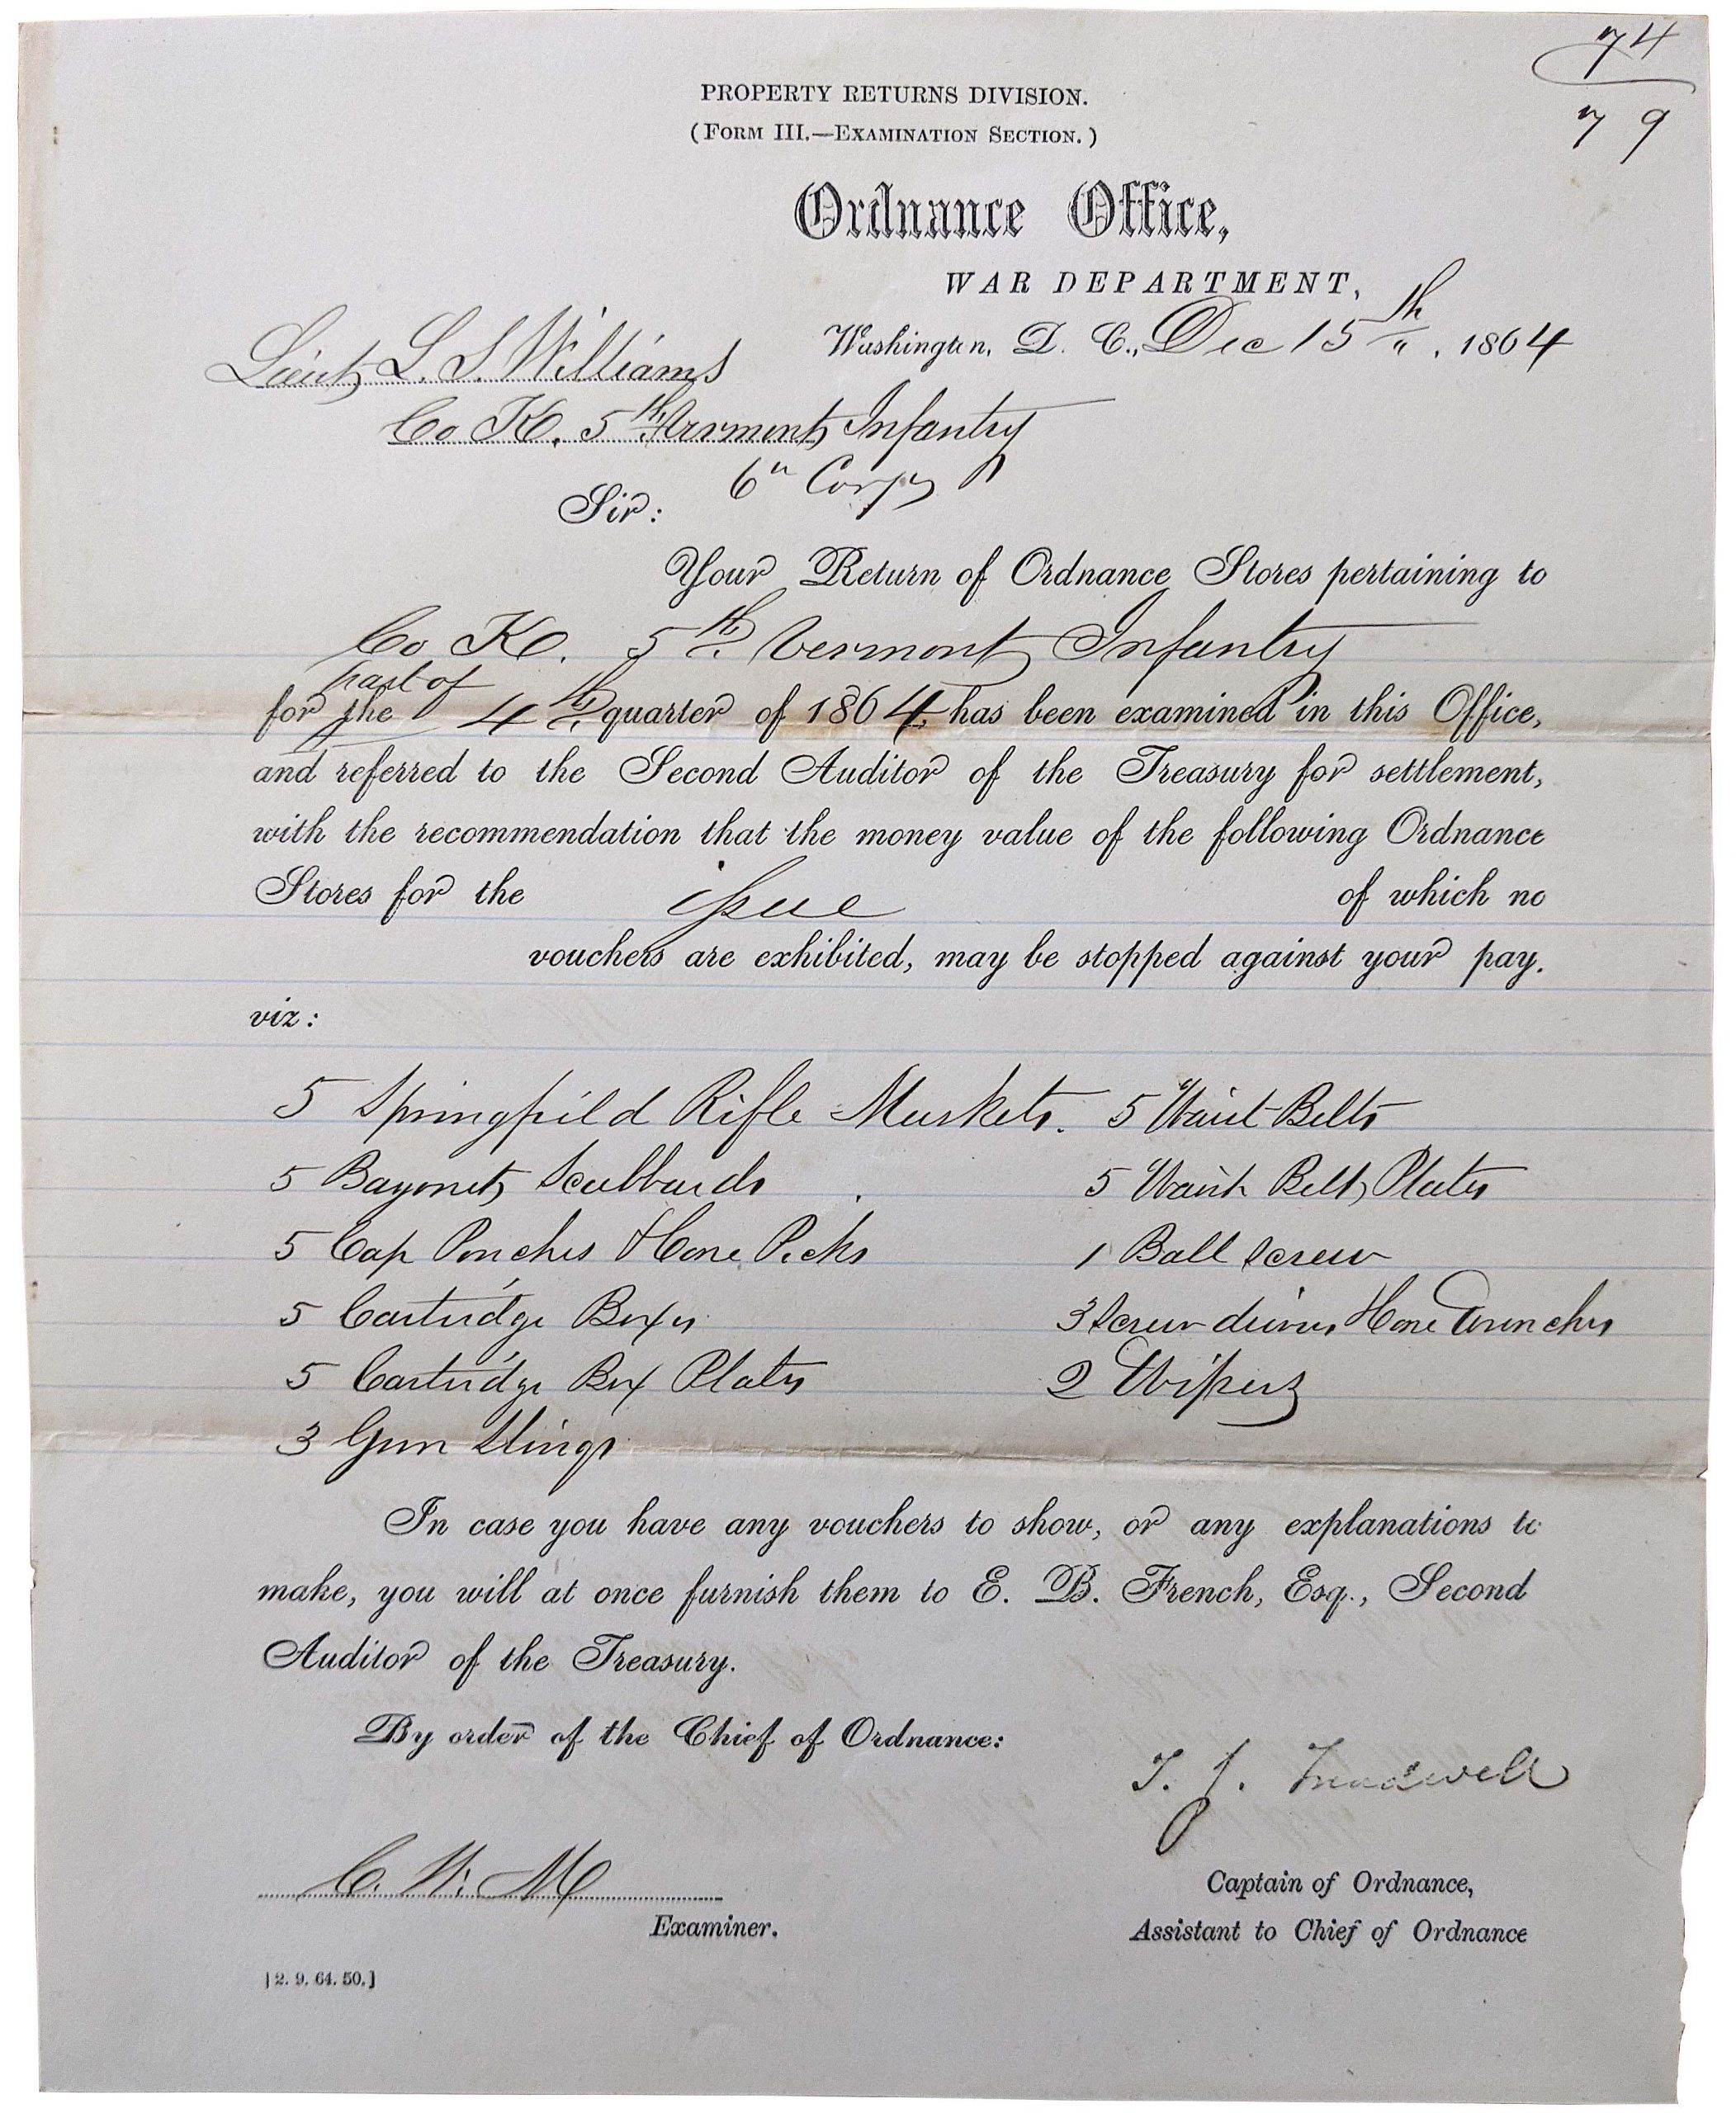 74
79
PROPERTY RETURNS DIVISION.
(FORM III.—EXAMINATION SECTION.)
Ordnance Office,
WAR DEPARTMENT,
Washington, D. C., Dec 15th, 1864
Lieut L. S. Williams
Co K. 5th Vermont Infantry
6" Corps
Sir:
Your Return of Ordnance Stores pertaining to
Co K. 5th Vermont Infantry
part of
for the 4th quarter of 1864, has been examined in this Office,
and referred to the Second Auditor of the Treasury for settlement,
with the recommendation that the money value of the following Ordnance
Stores for the issue of which no
vouchers are exhibited, may be stopped against your pay.
viz:
5 Springfield Rifle Muskets. 5 Waist Belts
5 Bayonet Scabbards 5 Waist Belt Plates
5 Cap Pouches & Cone Picks 1 Ball Screw
5 Cartridge Boxes 3 Screw drivers & Cone Wrenches
5 Cartridge Box Plates 2 Wipers
3 Gun Slings
In case you have any vouchers to show, or any explanations to
make, you will at once furnish them to E. B. French, Esq., Second
Auditor of the Treasury.
By order of the Chief of Ordnance:
T. J. Treadwell
C. W. M
Captain of Ordnance,
Examiner.
Assistant to Chief of Ordnance
[2. 9. 64. 50.]